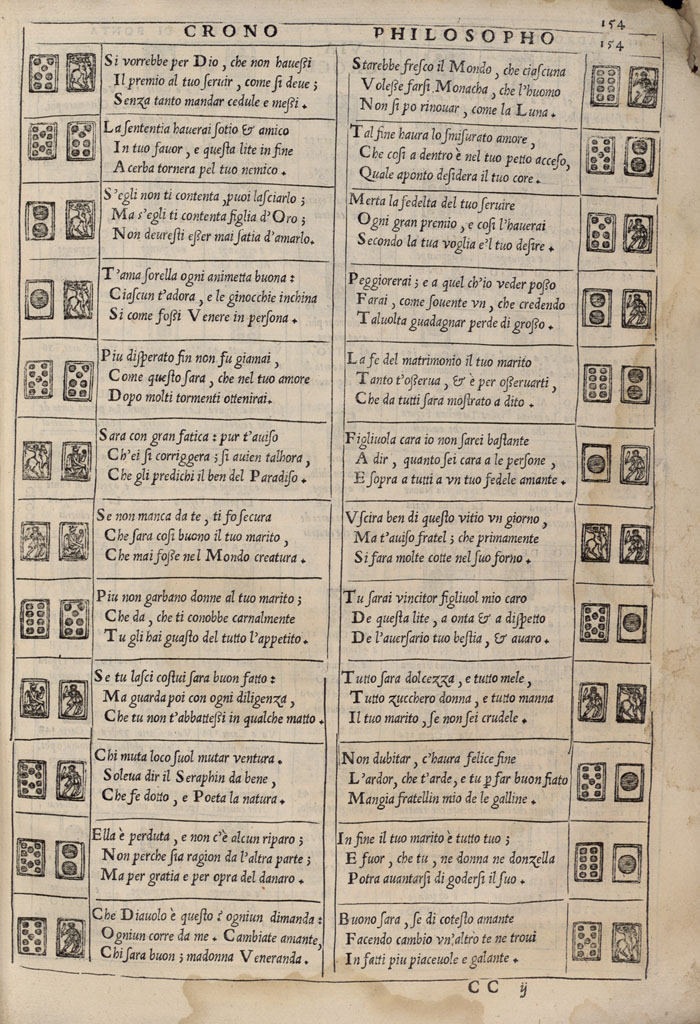 CRONO
Si vorrebbe per Dio, che non haueſſi
Il premio al tuo ſeruir, come ſi deue;
Senza tanto mandar cedule e meſſi.
La ſententia hauerai ſotio & amico
In tuo fauor, e queſta lite in fine
Acerba tornera pel tuo nemico.
S'egli non ti contenta, puoi laſciarlo;
Ma s'egli ti contenta figlia d'Oro;
Non deureſti eſſer mai ſatia d'amarlo.
T'ama ſorella ogni animetta buona:
Ciaſcun t'adora, e le ginocchie inchina
Si come foſſi Venere in perſona.
Piu diſperato fin non fu giamai,
Come queſto ſara, che nel tuo amore
Dopo molti tormenti ottenirai.
Sara con gran fatica: pur t'auiſo
Ch'ei ſi corriggera; ſi auien talhora,
Che gli predichi il ben del Paradiſo.
Se non manca da te, ti fo ſecura
Che ſara coſi buono il tuo marito,
Che mai foſſe nel Mondo creatura.
Piu non garbano donne al tuo marito;
Che da, che ti conobbe carnalmente
Tu gli hai guaſto del tutto l'appetito.
Se tu laſci coſtui ſara buon fatto:
Ma guarda poi con ogni diligenza,
Che tu non t'abbatteſſi in qualche matto.
Chi muta loco ſuol mutar ventura.
Soleua dir il Seraphin da bene,
Che fe dotto, e Poeta la natura.
Ella è perduta, e non c'è alcun riparo;
Non perche ſia ragion da l'altra parte;
Ma per gratia e per opra del danaro.
Che Diauolo è queſto? ogniun dimanda:
Ogniun corre da me. Cambiate amante,
Chi ſara buon; madonna Veneranda.
PHILOSOPHO
154
154
Starebbe freſco il Mondo, che ciaſcuna
Voleſſe farſi Monacha, che l'huomo
Non ſi po rinouar, come la Luna.
Tal fine haura lo ſmiſurato amore,
Che coſi a dentro è nel tuo petto acceſo,
Quale aponto deſidera il tuo core.
Merta la fedelta del tuo ſeruire
Ogni gran premio, e coſi l'hauerai
Secondo la tua voglia e'l tuo deſire.
Peggiorerai; e a quel ch'io veder poſſo
Farai, come ſouente vn, che credendo
Taluolta guadagnar perde di groſſo.
La fe del matrimonio il tuo marito
Tanto t'oſſerua, & è per oſſeruarti,
Che da tutti ſara moſtrato a dito.
Figliuola cara io non ſarei baſtante
A dir, quanto ſei cara a le perſone,
E ſopra a tutti a vn tuo fedele amante.
Vſcira ben di queſto vitio vn giorno,
Ma t'auiſo fratel; che primamente
Si fara molte cotte nel ſuo forno.
Tu ſarai vincitor figliuol mio caro
De queſta lite, a onta & a diſpetto
De l'auerſario tuo beſtia, & auaro.
Tutto ſara dolcezza, e tutto mele,
Tutto zucchero donna, e tutto manna
Il tuo marito, ſe non ſei crudele.
Non dubitar, c'haura felice fine
L'ardor, che t'arde, e tu ꝑ far buon fiato
Mangia fratellin mio de le galline.
In fine il tuo marito è tutto tuo;
E fuor, che tu, ne donna ne donzella
Potra auantarſi di goderſi il ſuo.
Buono ſara, ſe di coteſto amante
Facendo cambio vn'altro te ne troui
In fatti piu piaceuole e galante.
CC ij